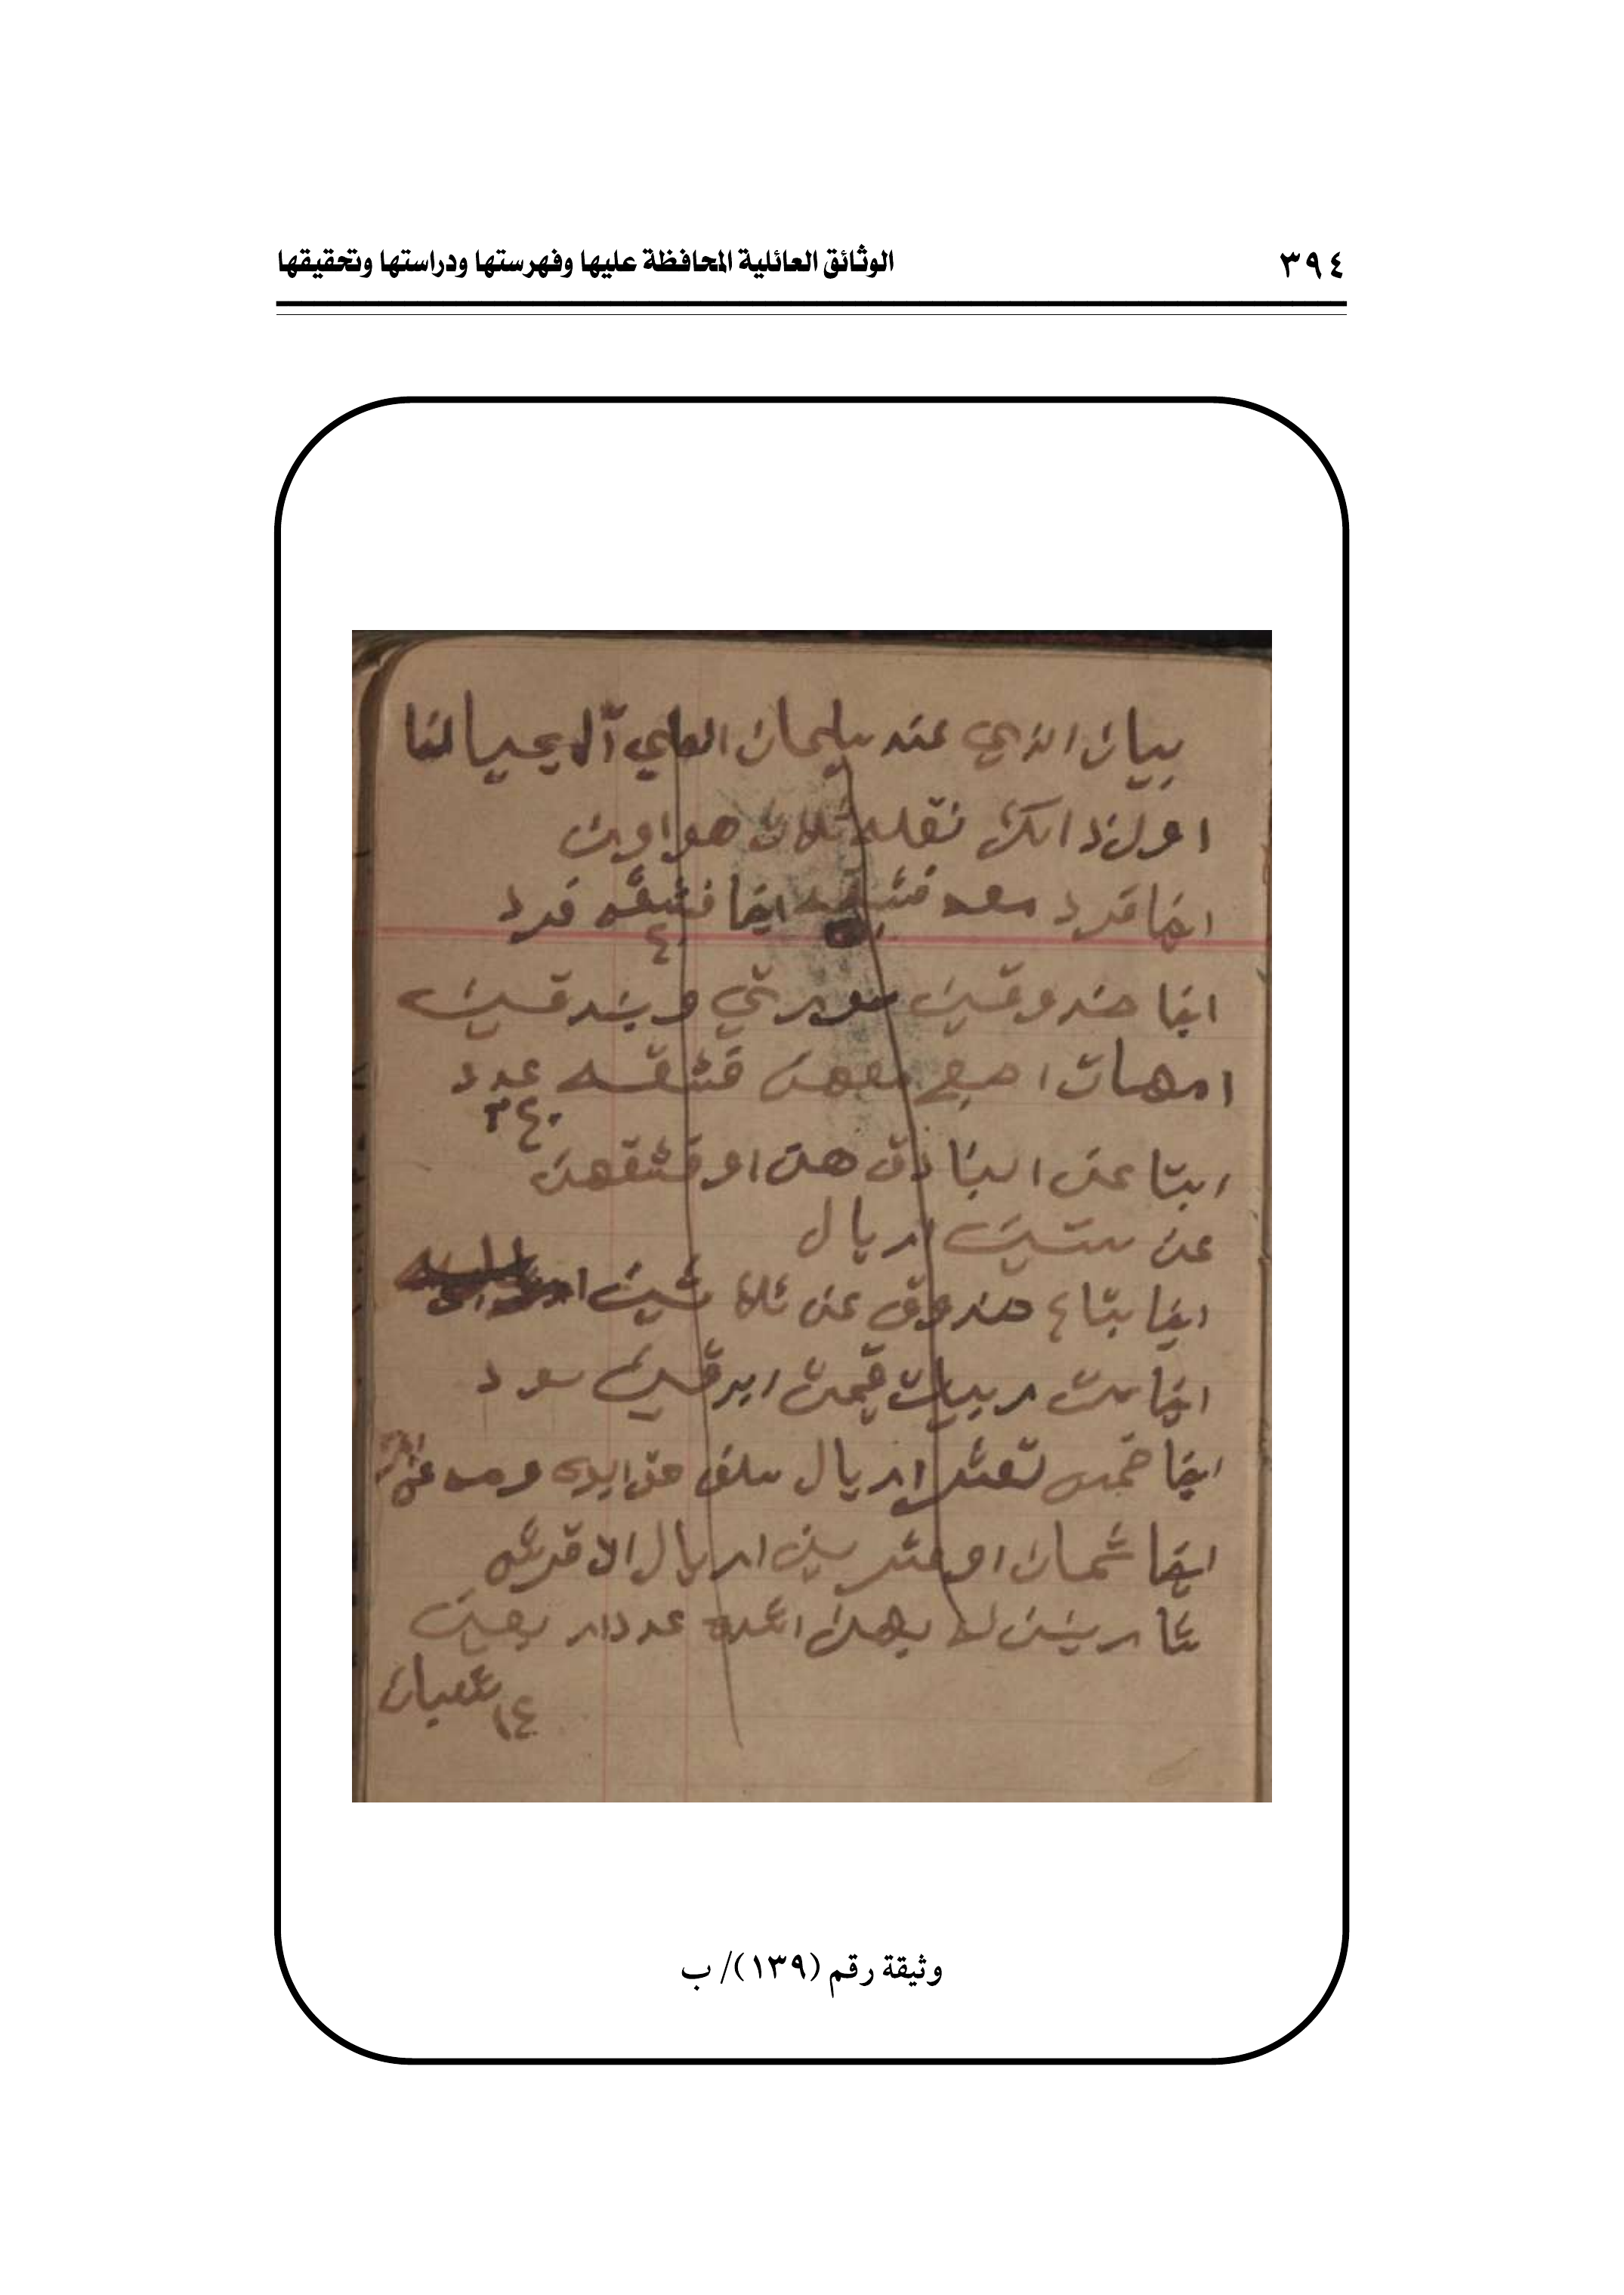 ٣٩٤
الوثائق العائلية المحافظة عليها وفهرستها ودراستها وتحقيقها
بيان الذي عند سليمان العلي آل يحيا لنا
اول ذالك نقله ثلاث هواوين
ايضا فرد معه فشقه ايضا فشقه فرد
٤٠
ايضا صندوقين سورتي وبندقين
امهات اصبع معهن فشقه عدد
٣٤٠
ابتا عن البنادق هن او فشقهن
عن ستين اريال
ايضا بتاع صندوق عن ثلاثين
ايضا ست ربيات قيمت ابرقين سود
ايضا خمس تعشر اريال سلف من ايدي
ايضا ثمان او عشرين اريال الا قرش
شارينن له بهن اعدة عدد اربعين
١٤ شعبان
وثيقة رقم (١٣٩)/ ب